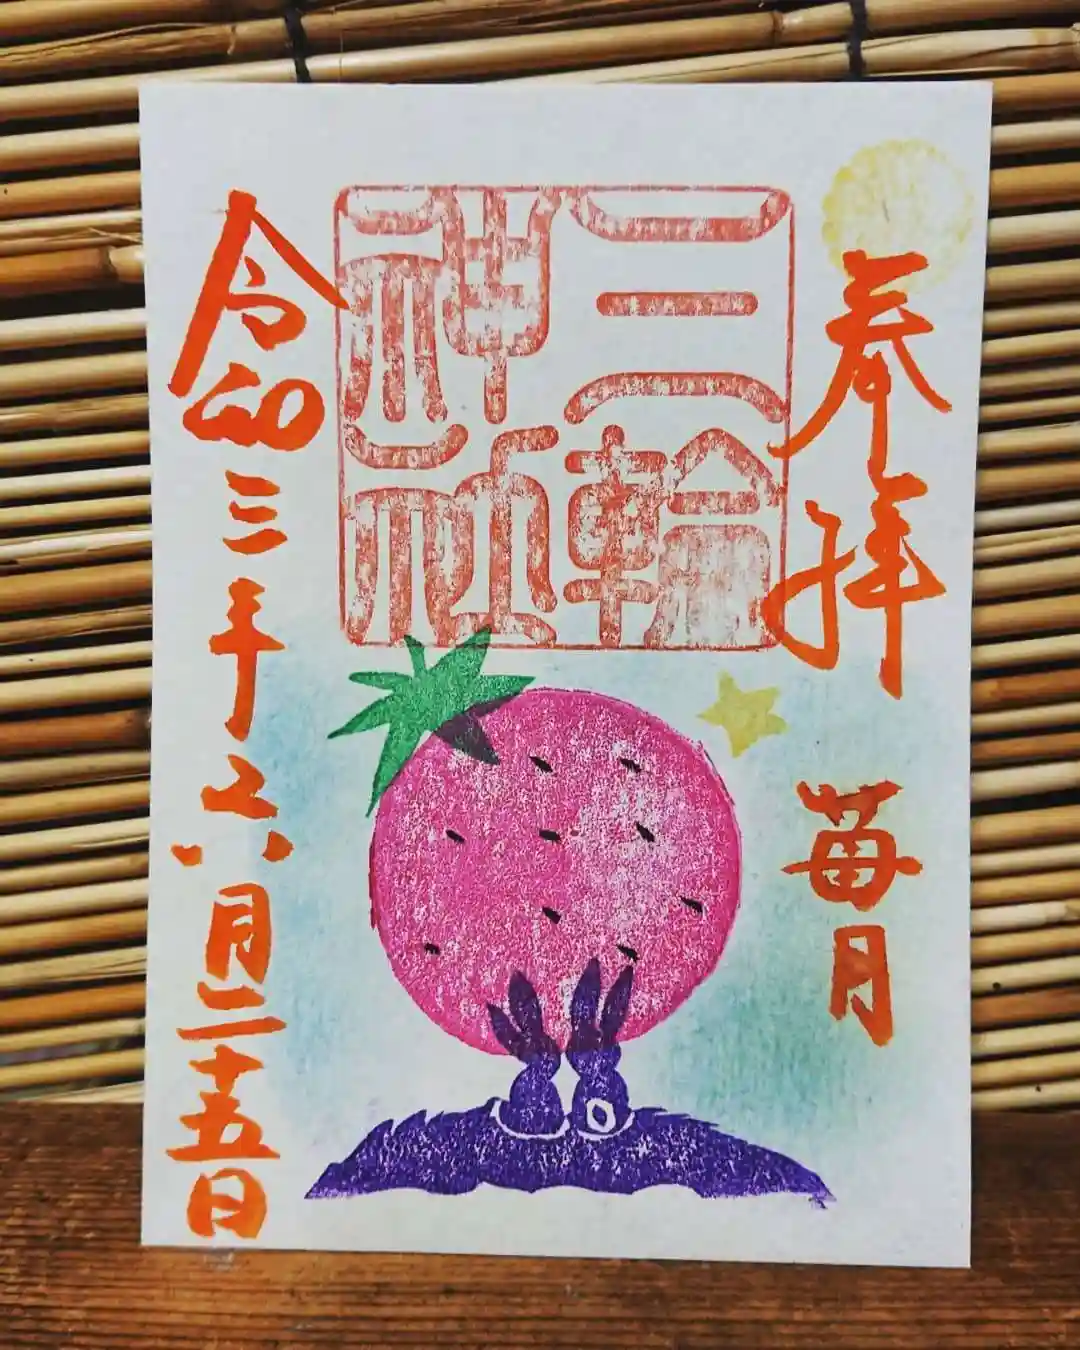 奉拝 苺月
三輪
神社
令和三年六月二十五日